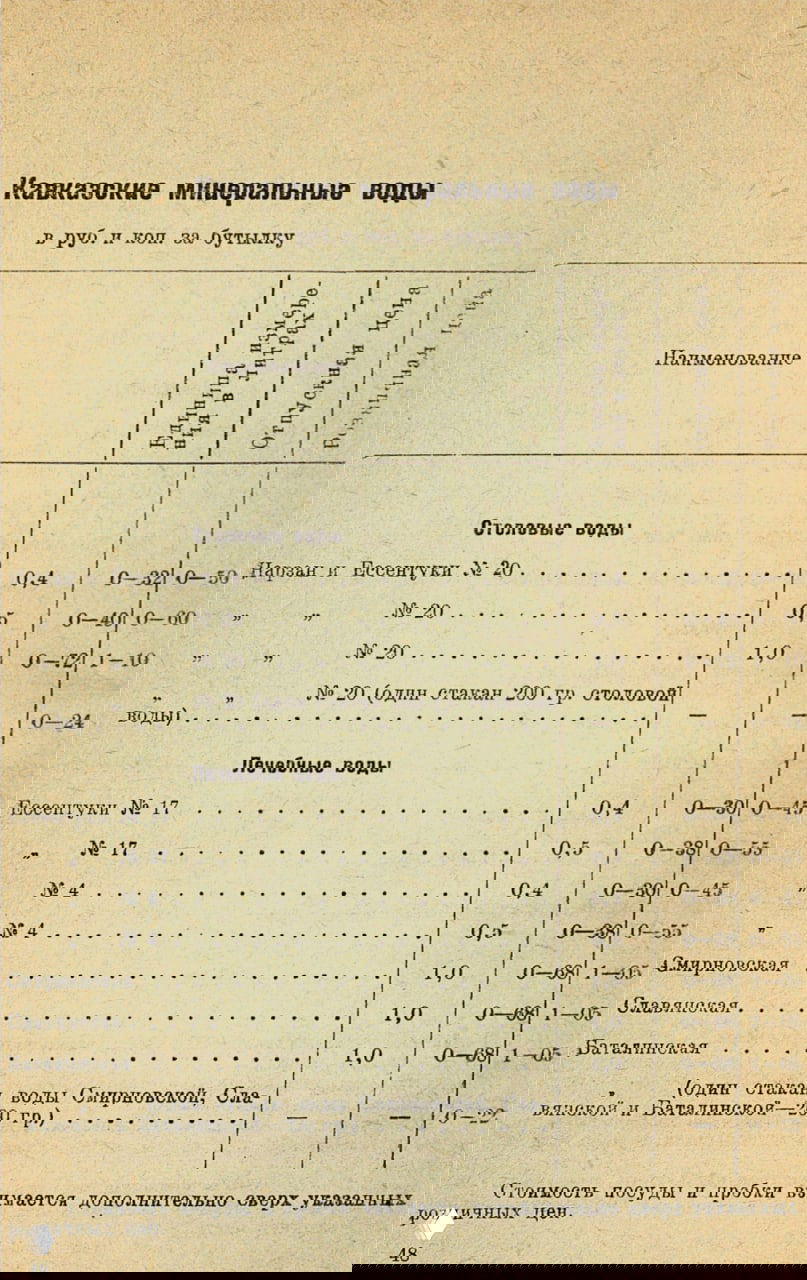 Кавказские минеральные воды
в руб и коп за бутылку
Наименование
Единица измерения в литрах
Отпускная цена
Розничная цена
Столовые воды
Нарзан и Ессентуки № 20 . . . . 0,4 0—32 0—50
„ „ № 20 . . . . 0—40 0—60
„ „ № 20 . . . . 1,0 0—72 1—10
„ „ № 20 (один стакан 200 гр. столовой
воды) . . . . — — 0—24
Лечебные воды
Ессентуки № 17 . . . . 0,4 0—30 0—45
„ № 17 . . . . 0,5 0—38 0—55
„ № 4 . . . . 0,4 0—30 0—45
„ № 4 . . . . 0,5 0—38 0—55
Смирновская . . . . 1,0 0—68 1—05
Славянская . . . . 1,0 0—68 1—05
Баталинская . . . . 1,0 0—68 1—05
„ (один стакан воды Смирновской, Сла-
вянской и Баталинской—200 гр.) . . . . — — 0—22
Стоимость посуды и пробки взимается дополнительно сверх указанных
розничных цен.
48